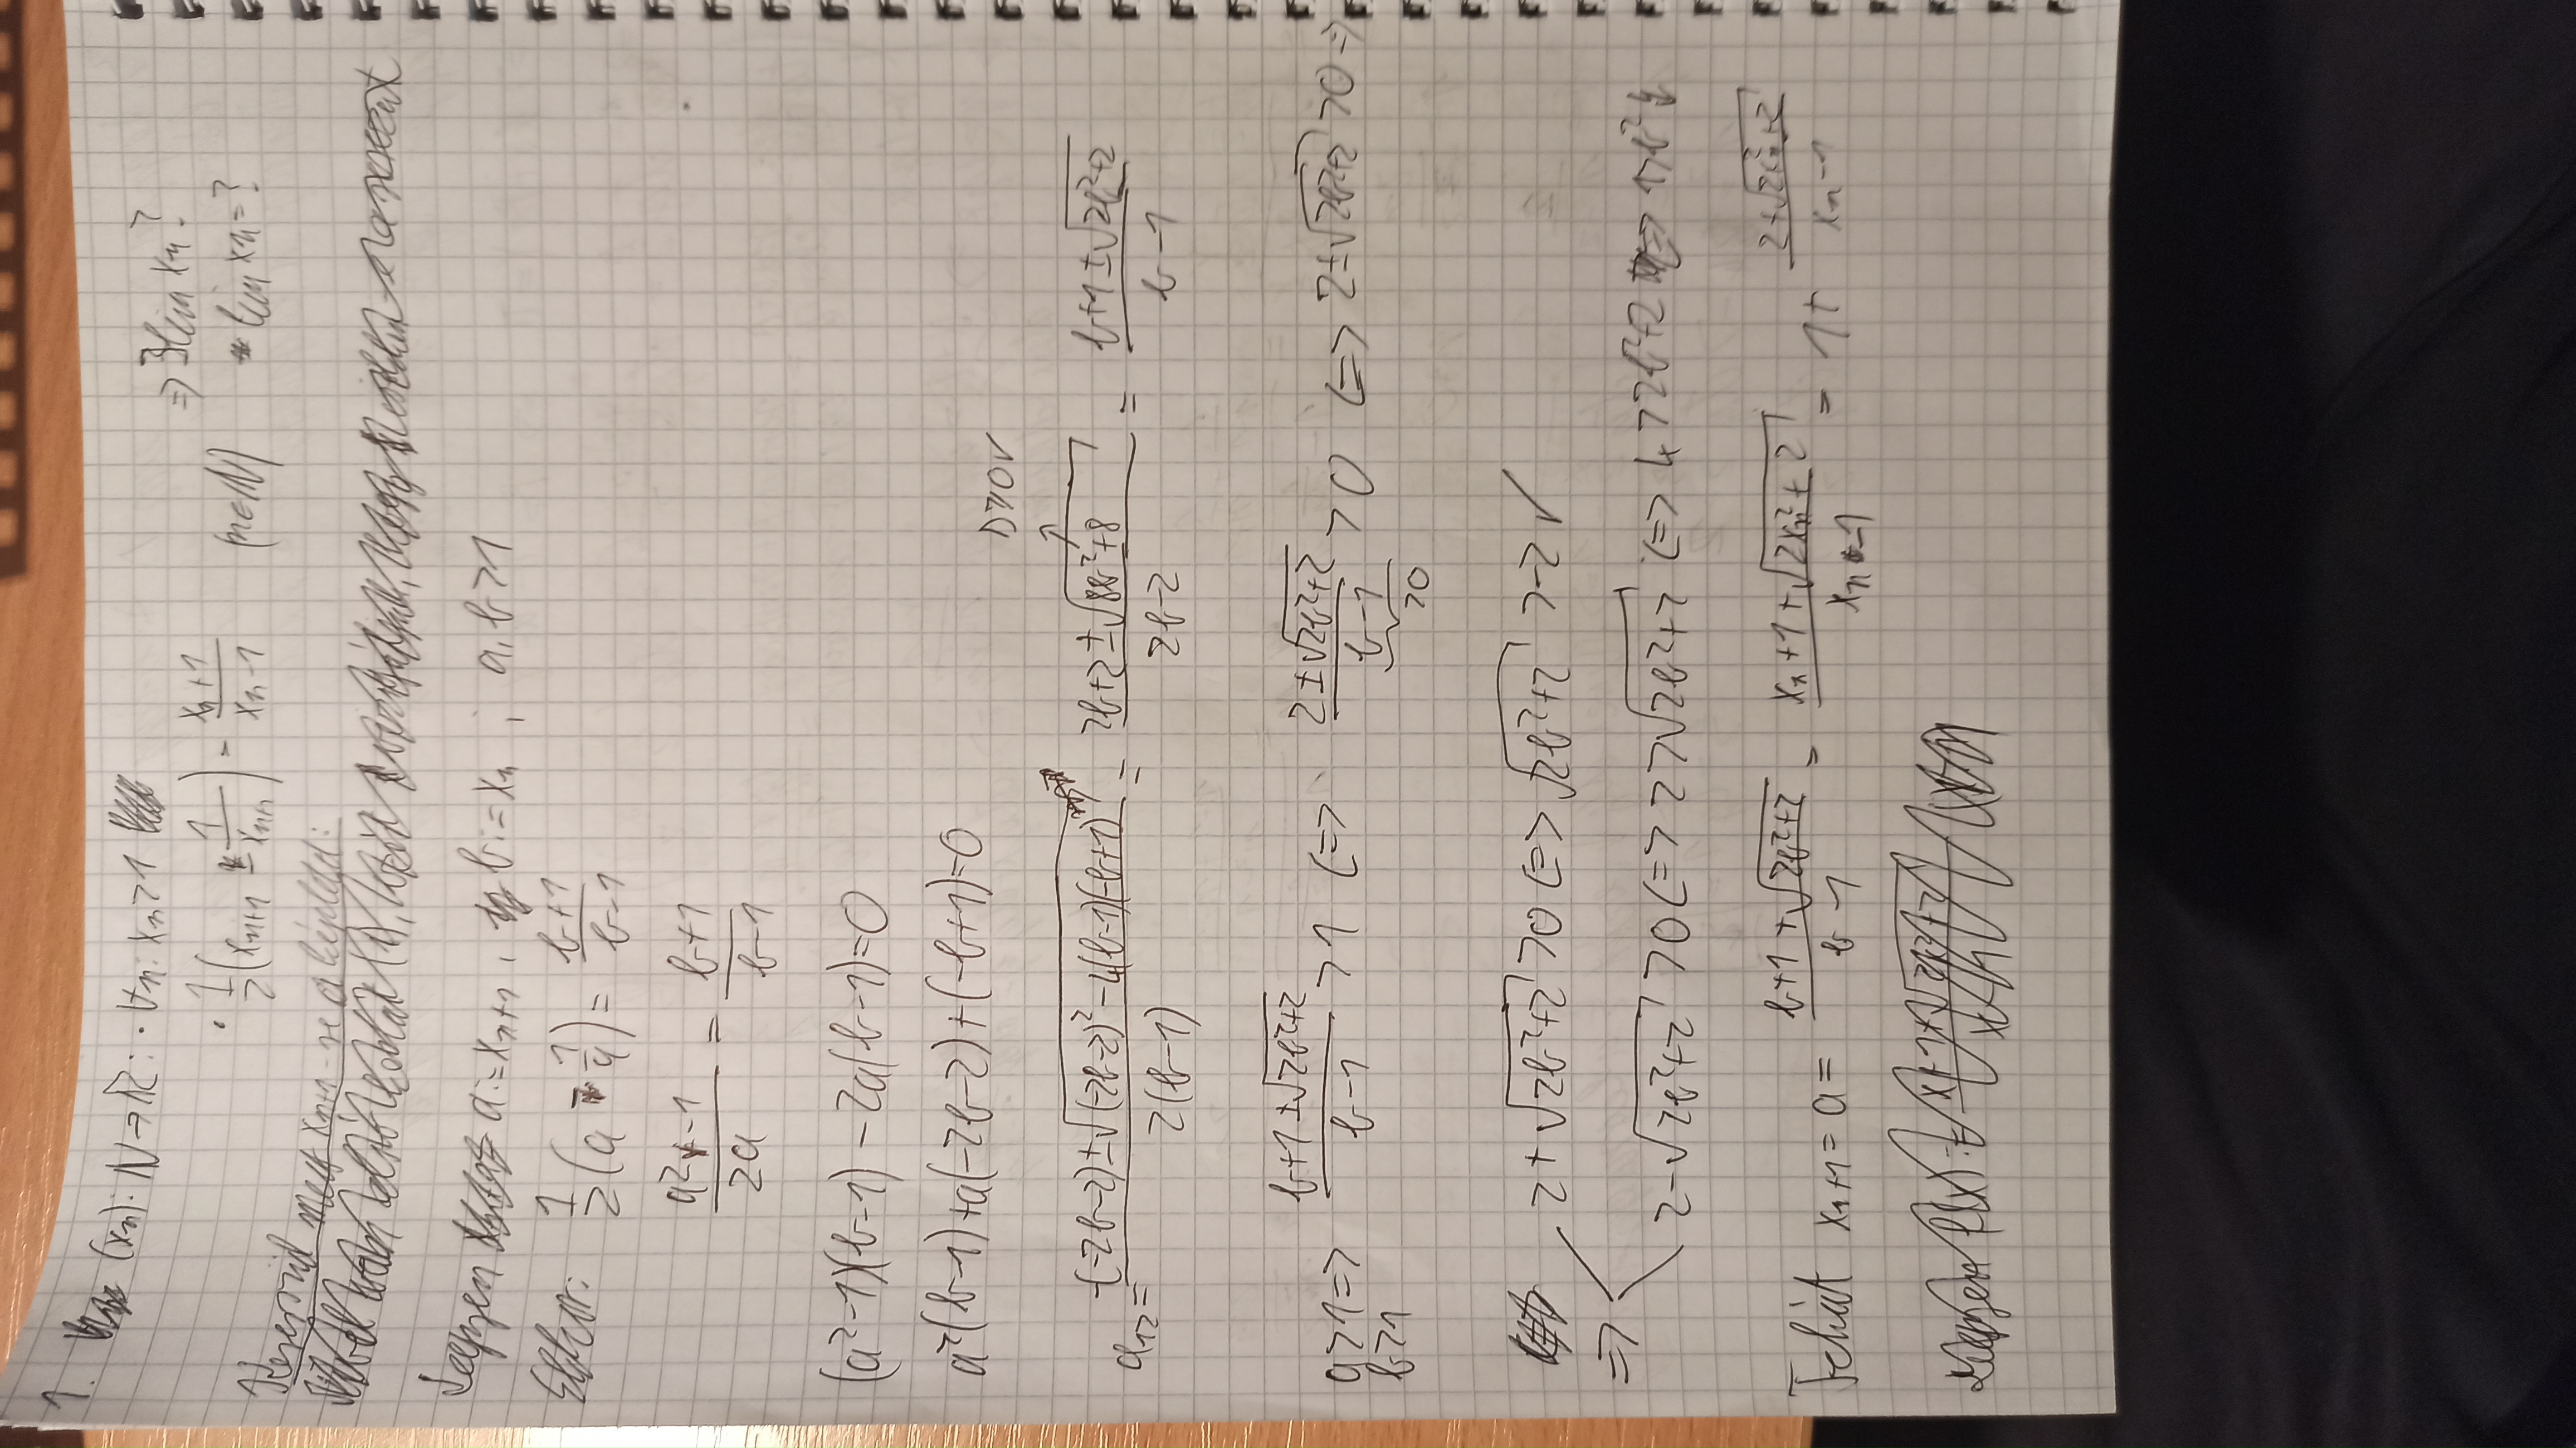 1. (xₙ): ℕ→ℝ: · ∀n: xₙ>1
· 1/2 (xₙ₊₁ - 1/xₙ₊₁) = (xₙ+1)/(xₙ-1) (n∈ℕ) => ∃lim xₙ?
lim xₙ=?
xₙ₊₁-re a képletet:
Legyen a:=xₙ₊₁, b:=xₙ ; a,b>1
Ekkor: 1/2 (a - 1/a) = (b+1)/(b-1)
(a²-1)/(2a) = (b+1)/(b-1)
(a²-1)(b-1) - 2a(b-1)=0
a²(b-1)+a(-2b-2)+(-b+1)=0
D≥0✓
a₁₂= (-(-2b-2)±√((-2b-2)²-4(b-1)(-b+1)))/(2(b-1)) = (2b+2±√(8b²+8))/(2b-2) = (b+1±√(2b²+2))/(b-1)
a>1 => (b+1±√(2b²+2))/(b-1) >1 <=> (2±√(2b²+2))/(b-1) >0 <=> 2±√(2b²+2) >0 =>
b>1
>0
2+√(2b²+2) >0 <=> √(2b²+2) >-2 ✓
=>
2-√(2b²+2) >0 <=> 2>√(2b²+2) <=> 4>2b²+2 <=> 1>b² ↯
Tehát xₙ₊₁ = a = (b+1+√(2b²+2))/(b-1) = (xₙ+1+√(2xₙ²+2))/(xₙ-1) = 1+ (2+√(2xₙ²+2))/(xₙ-1)